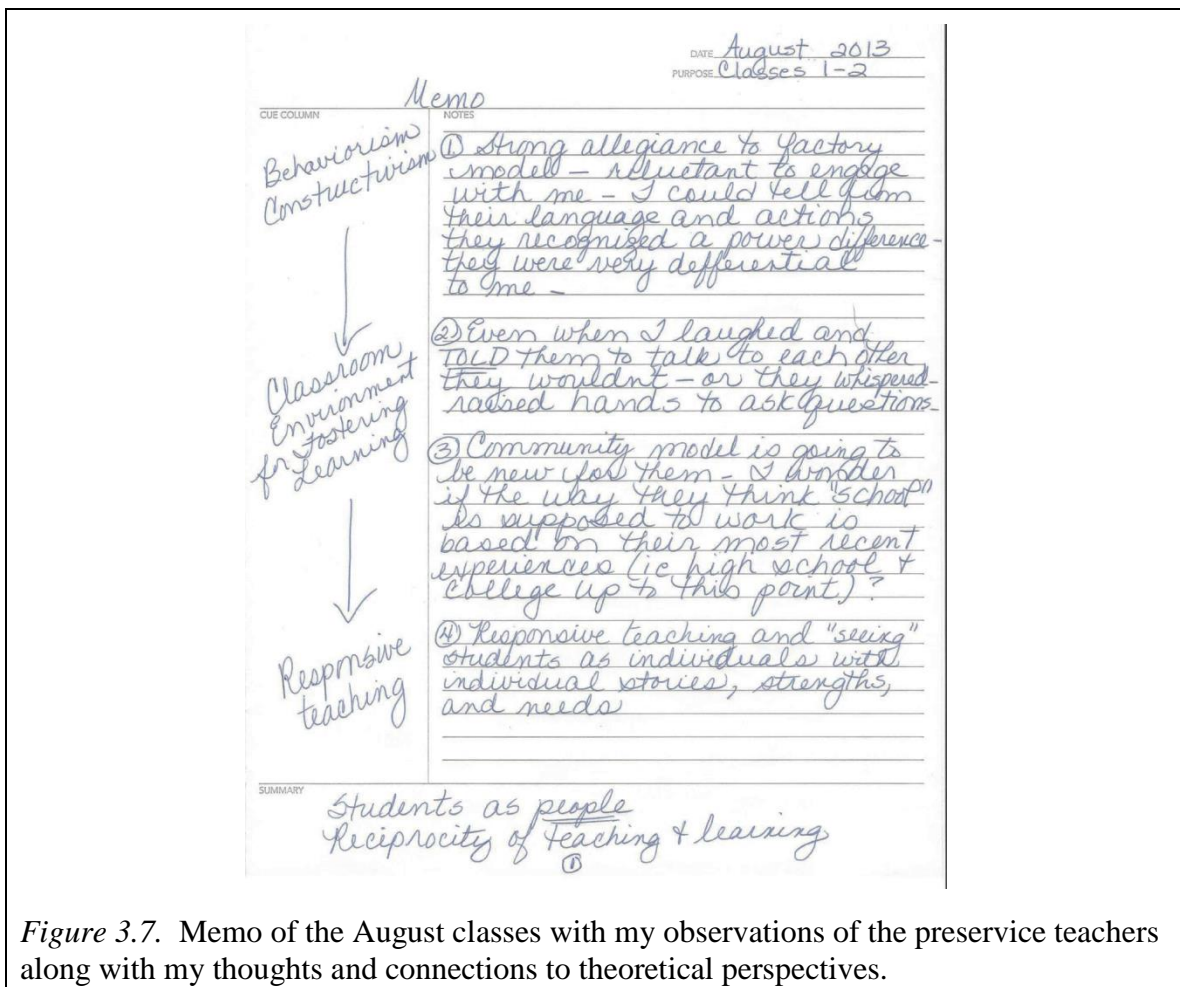 DATE August 2013
PURPOSE Classes 1-2
Memo
CUE COLUMN
NOTES
Behaviorism
Constuctivism
Classroom
Environment
for Fostering
Learning
Responsive
teaching
① Strong allegiance to factory
model – reluctant to engage
with me – I could tell from
their language and actions
they recognized a power difference –
they were very defferential
to me –
② Even when I laughed and
TOLD them to talk to each other
they wouldnt – or they whispered –
raised hands to ask questions –
③ Community model is going to
be new for them – I wonder
if the way they think "school"
is supposed to work is
based on their most recent
experiences (ie high school +
college up to this point)?
④ Responsive teaching and "seeing"
students as individuals with
individual stories, strengths,
and needs
SUMMARY
Students as people
Reciprocity of teaching + learning
①
Figure 3.7. Memo of the August classes with my observations of the preservice teachers
along with my thoughts and connections to theoretical perspectives.